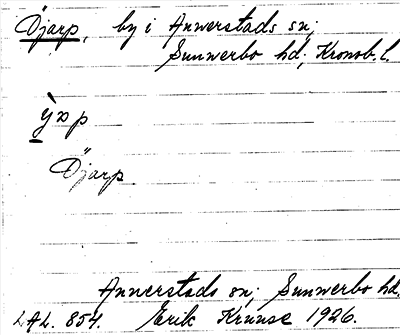 Öjarp, by i Annerstads sn;
Sunnerbo hd; Kronob. l.
Öjarp
Annerstads sn; Sunnerbo hd.
LAL. 854. Erik Kruuse 1926.